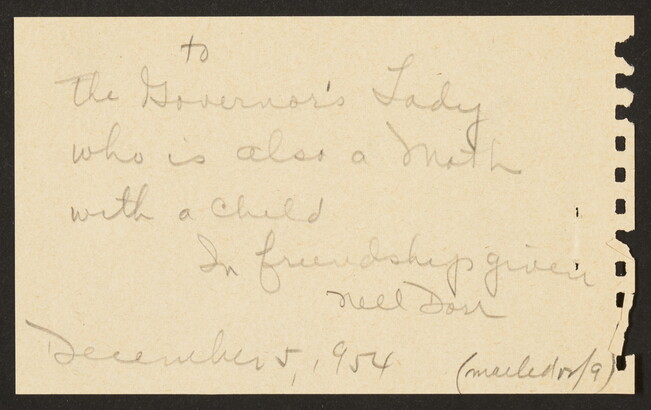 to
the Governor's Lady
who is also a Moth
with a child
In friendship given
Nell Dorr
December 5, 1954 (mailed 12/9)